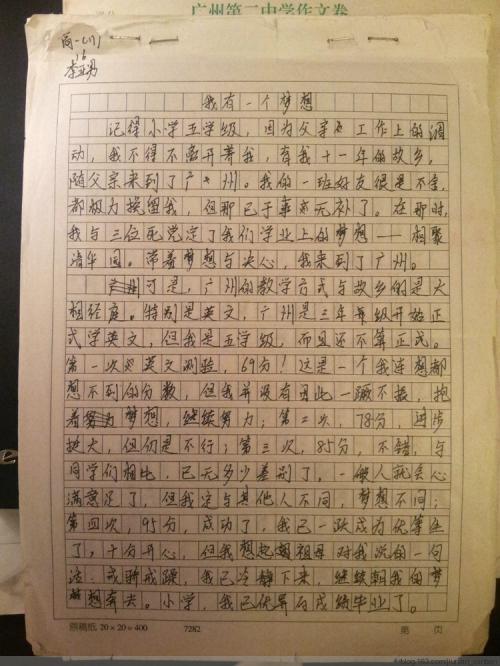 广州第二中学作文卷
高一(11)
16
李亚男
我有一个梦想
记得小学五学级，因为父亲工作上的调
动，我不得不离开养我，育我十一年的故乡，
随父亲来到了广州。我的一班好友很是不舍，
都极力挽留我，但那已于事无补了。在那时，
我与三位死党定了我们学业上的梦想——相聚
清华园。带着梦想与决心，我来到了广州。
可是，广州的教学方式与故乡的是大
相径庭。特别是英文，广州是三年级开始正
式学英文，但我是五学级，而且还不算正式。
第一次英文测验，69分！这是一个我连想都
想不到的分数，但我并没有因此一蹶不振，抱
着梦想，继续努力；第二次，78分，进步
挺大，但仍是不行；第三次，85分，不错，与
同学们相比，已无多少差别了，一般人就会心
满意足了，但我定与其他人不同，梦想不同；
第四次，95分，成功了，我已一跃成为优等生
了，十分开心，但我想起祖母对我说的一句
话．戒骄戒躁，我已冷静下来，继续朝我的梦
想奔去。小学，我已优异的成绩毕业了。
原稿纸 20×20=400 7282 第 页